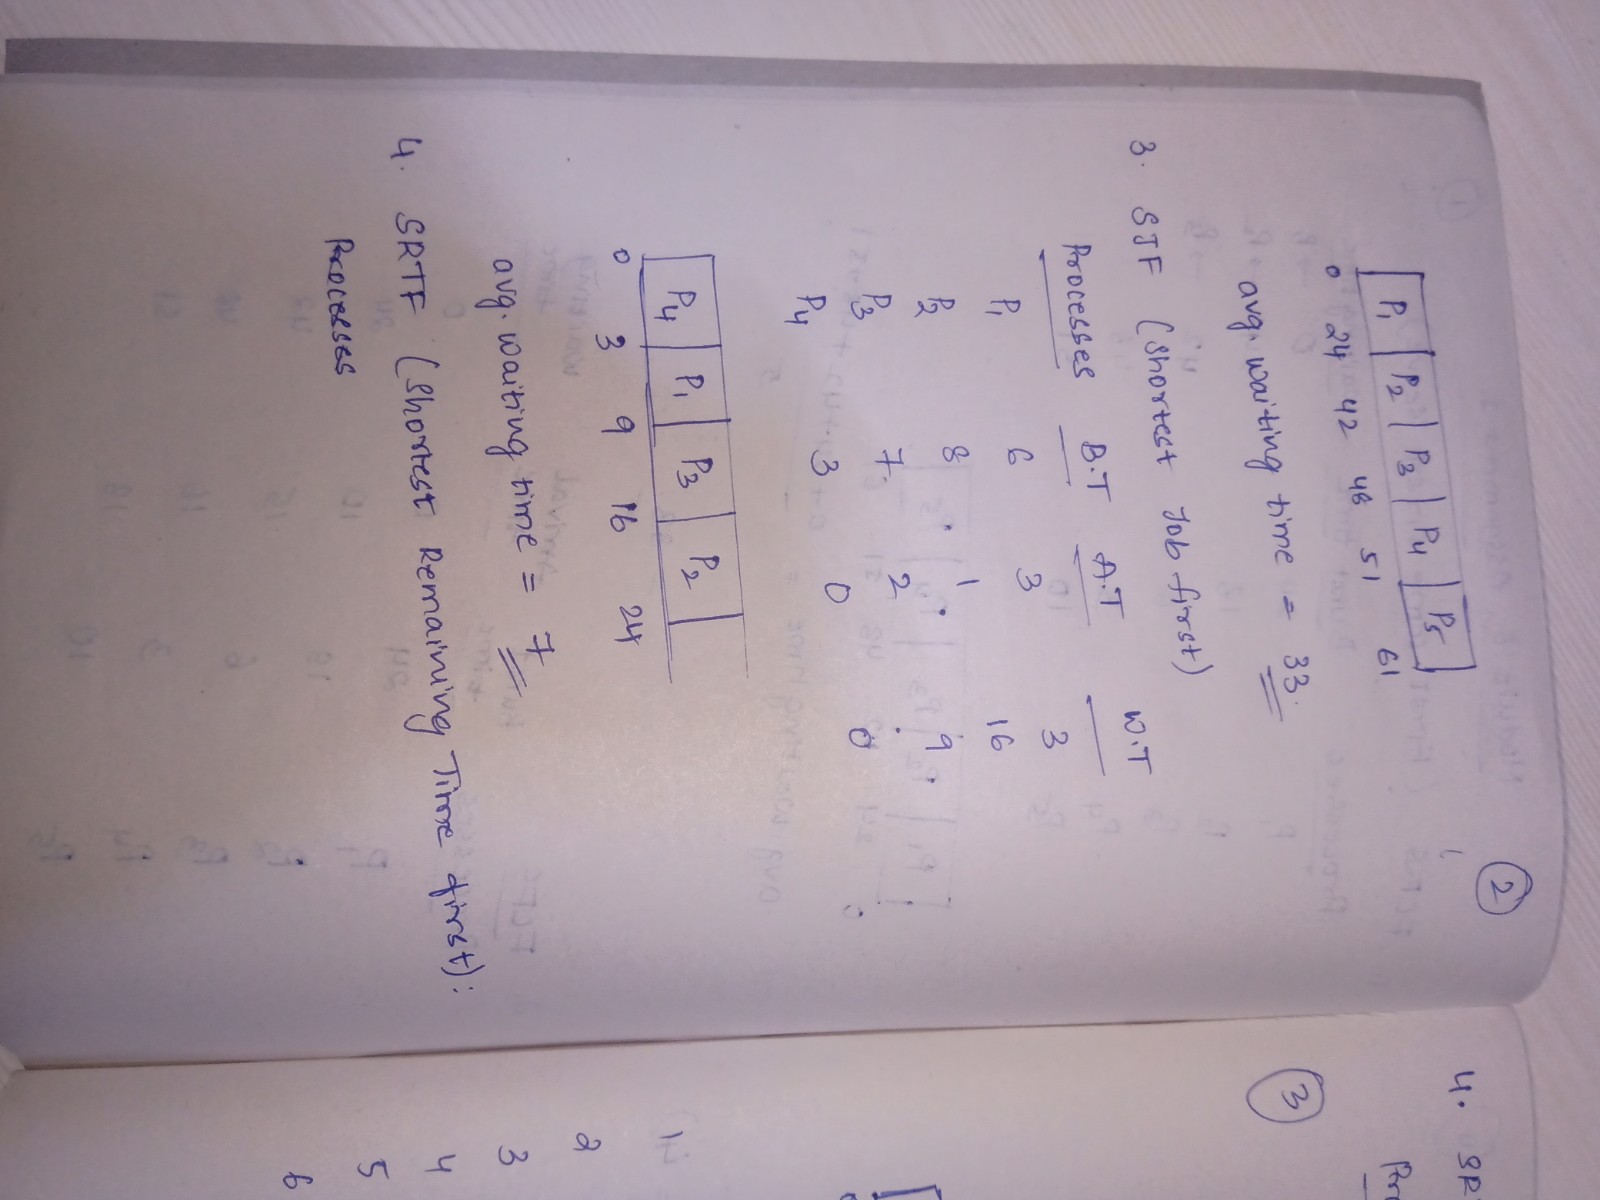 2
P1 P2 P3 P4 P5
0 24 42 46 51 61
avg. waiting time = 33.
3. SJF (Shortest Job first)
Processes B.T A.T W.T
P1 6 3 3
P2 8 1 16
P3 7 2 9
P4 3 0 0
P4 P1 P3 P2
0 3 9 16 24
avg. waiting time = 7
4. SRTF (Shortest Remaining Time first):
Processes
3
4. SR
Pr
0
1
2
3
4
5
6